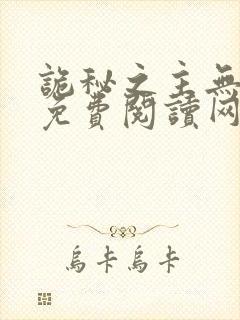 詭秘之主無
免費閱讀网
烏卡烏卡